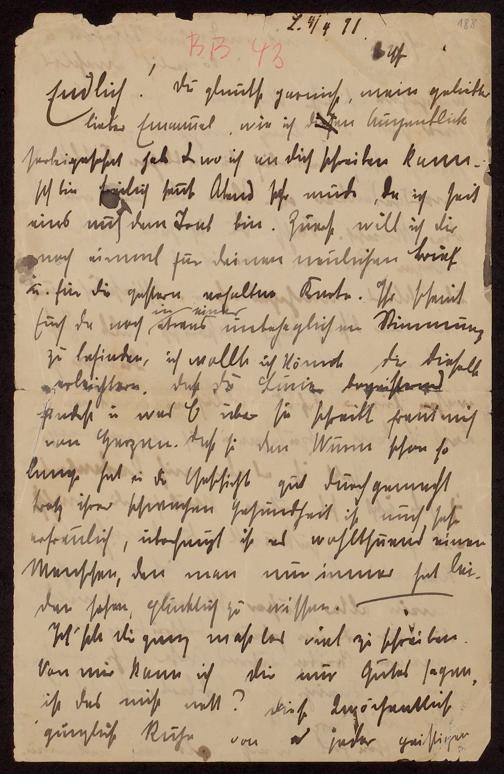 Z. 4/4 91.
188
BB 43
Endlich! Du glaubst garnicht, mein geliebter
lieber Emanuel, wie ich den Augenblick
herbeigesehnt hab & wo ich an dich schreiben kann.
Ich bin freilich heut Abend sehr müde, da ich seit
eins auf dem Trab bin. Zuerst will ich dir
noch einmal für deinen neulichen brief
u. für die gestern erhaltne Karte. Ihr scheint
Euch da noch in einer etwas unbehaglichen Stimmung
zu befinden, ich wollte ich könnte dir dieselbe
erleichtern. Daß du
findest u was C über sie schreibt freut mich
von Herzen. Daß sie den Wurm schon so
lange hat u die Geschichte gut durchgemacht
trotz ihrer schwachen Gesundheit ist auch sehr
erfreulich, überhaupt ist es wohlthuend einen
Menschen, den man nur immer hat lei-
den sehen, glücklich zu wissen.
Ich hab dir ganz maßlos viel zu schreiben.
Von mir kann ich dir nur Gutes sagen,
ist das nicht nett? Diese
gänzliche Ruhe von jeder geistigen